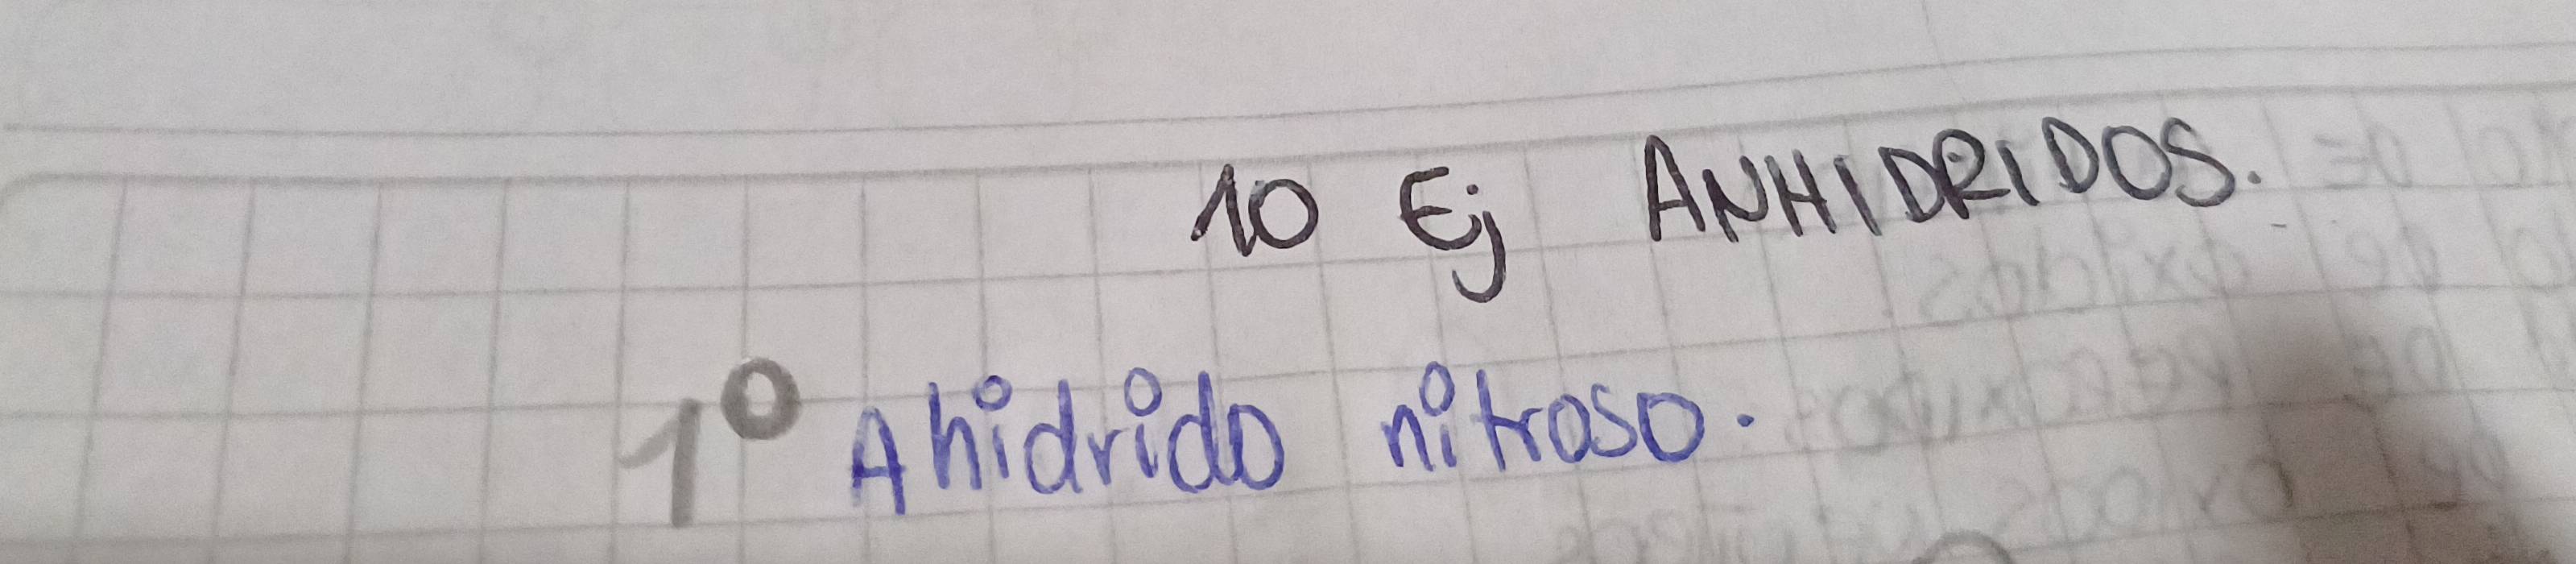 10 Ej ANHIDRIDOS.
1º Ahidrido nitroso.